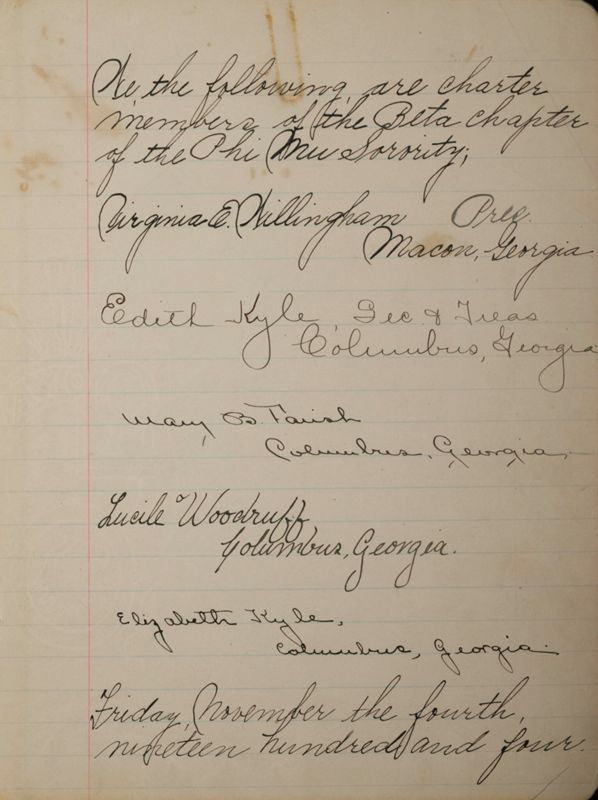 We the following are charter
members of the Beta chapter
of the Phi Mu Sorority;
Virginia E. Willingham Pres.
Macon, Georgia
Edith Kyle, Sec & Treas
Columbus, Georgia
Mary B. Tarish
Columbus, Georgia,
Lucile Woodruff
Columbus, Georgia.
Elizabeth Kyle,
Columbus, Georgia.
Friday, November the fourth,
nineteen hundred and four.